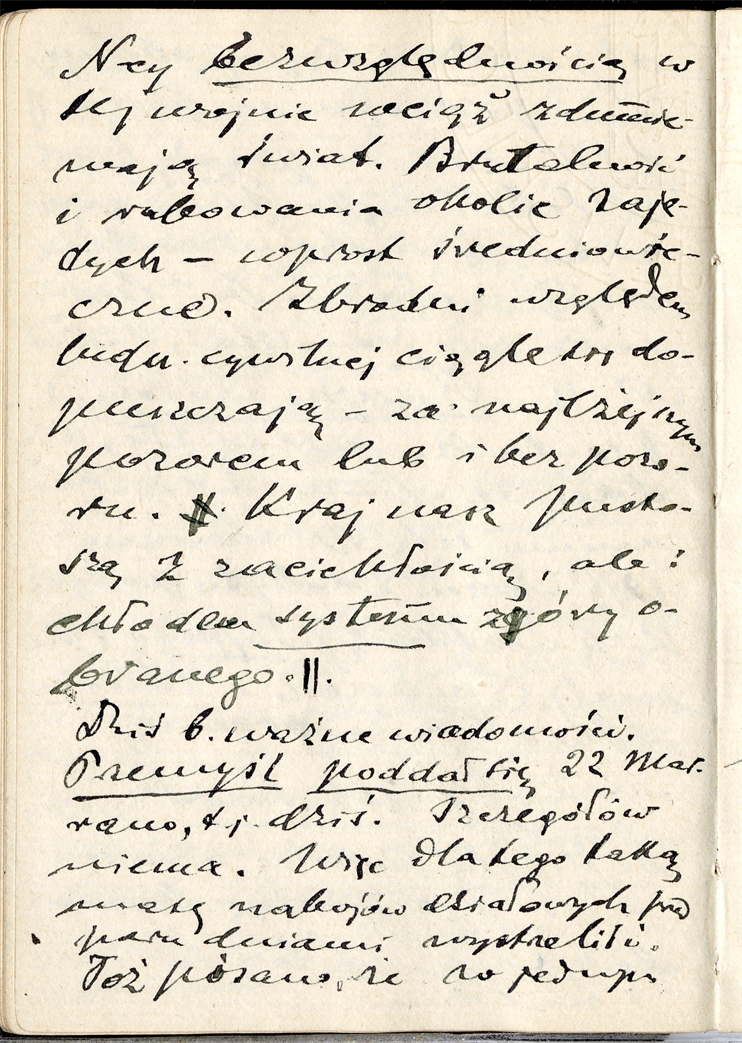 Ncy bezwzględnością w
tej wojnie wciąż zdumie-
wają świat. Brutalność
i rabowania okolic zaję-
tych – wprost średniowie-
czne. Zbrodni względem
ludn. cywilnej ciągle się do-
puszczają – za najlżejszym
pozorem lub i bez pozo-
ru. Kraj nasz pusto-
szą z zaciekłością, ale i
chłodem systemu zgóry o-
branego. ||.
Dziś b. ważne wiadomości.
Przemyśl poddał się 22 Mar.
rano, t.j. dziś. Szczegółów
niema. Więc dlatego taką
masę nabojów działowych przed
paru dniami wystrzelili.
Toż pisano, że w jednym